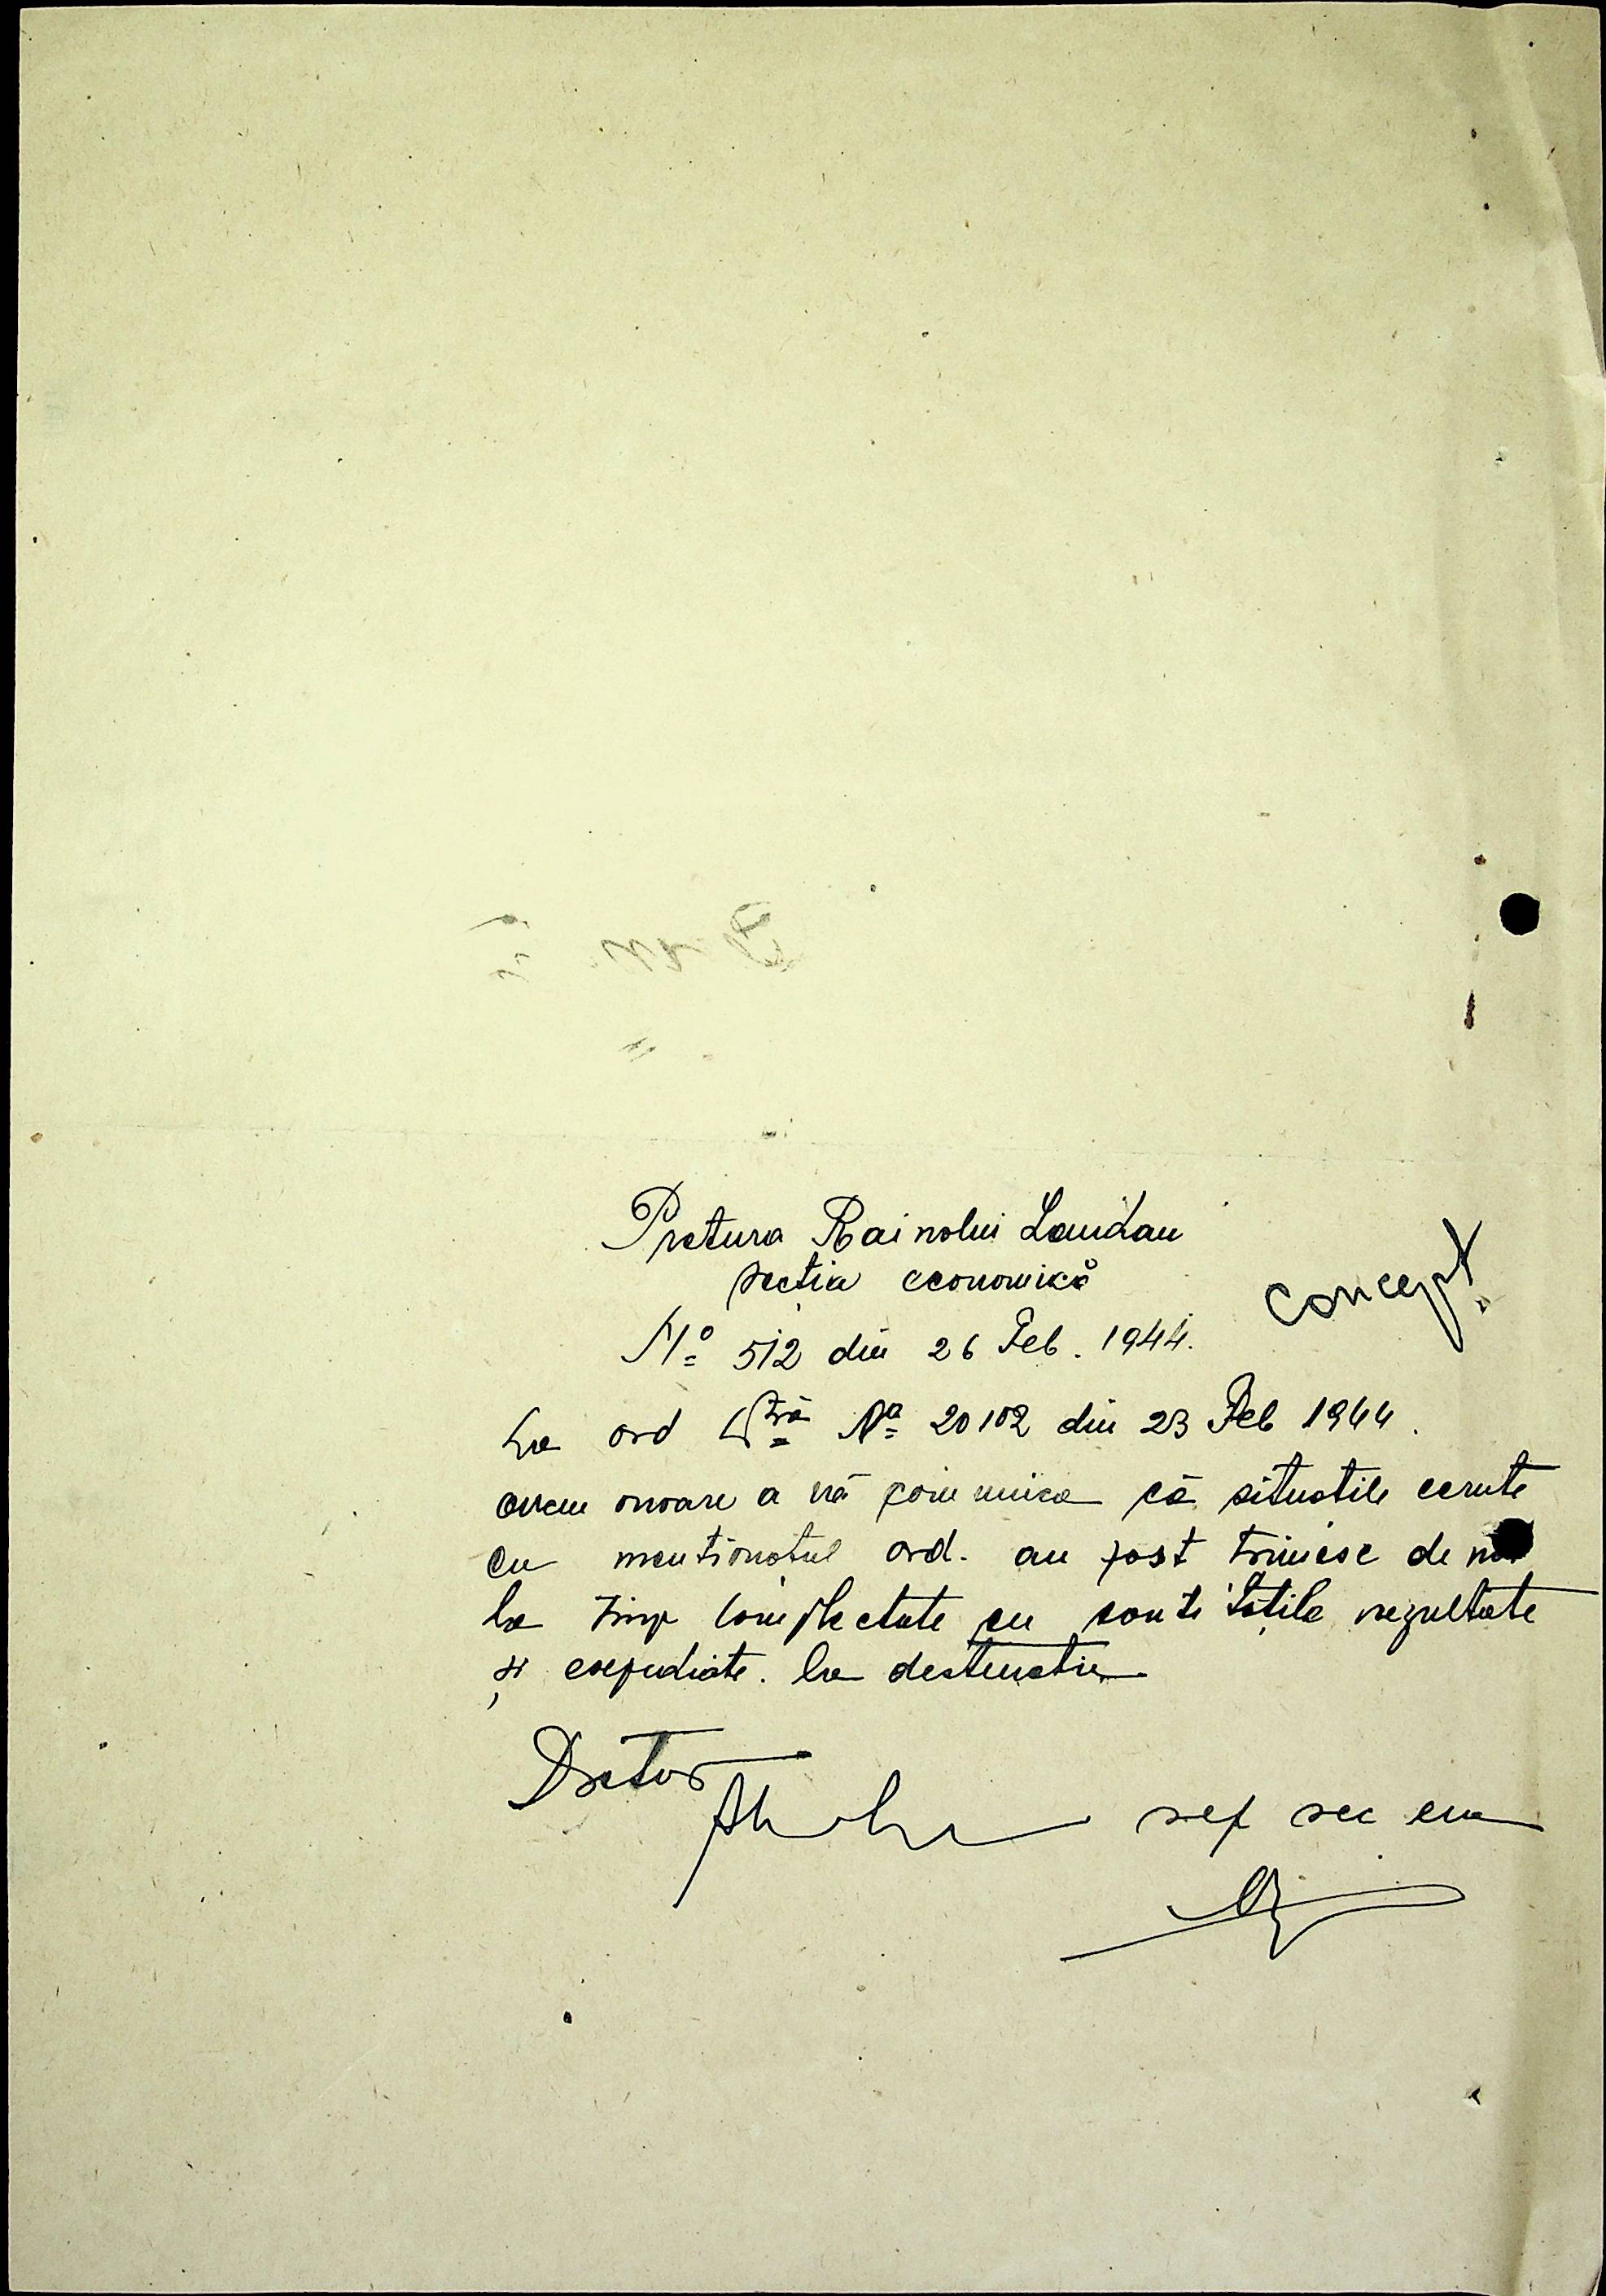 Pretura Raionolui Landau
secția economică
concept
No 512 din 26 Feb. 1944.
La ord Dvtră No 20102 din 23 Feb 1944.
avem onoare a vă comunica că situatile cerute
cu mentionatul ord. au fost trimese de noi
la timp complectate cu cantitățile rezultate
și expediate. la destinatie
Pretor
sef sec ec